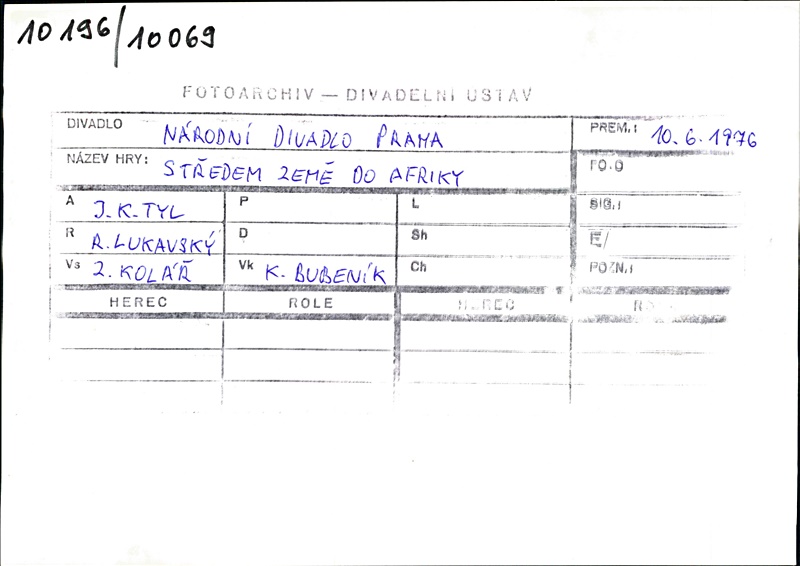 10196/10069
FOTOARCHIV — DIVADELNÍ ÚSTAV
DIVADLO NÁRODNÍ DIVADLO PRAHA PREM.: 10. 6. 1976
NÁZEV HRY: STŘEDEM ZEMĚ DO AFRIKY FOTO
A J. K. TYL P L SIG.:
R R. LUKAVSKÝ D Sh E/
Vs Z. KOLÁŘ Vk K. BUBENÍK Ch POZN.:
HEREC ROLE HEREC